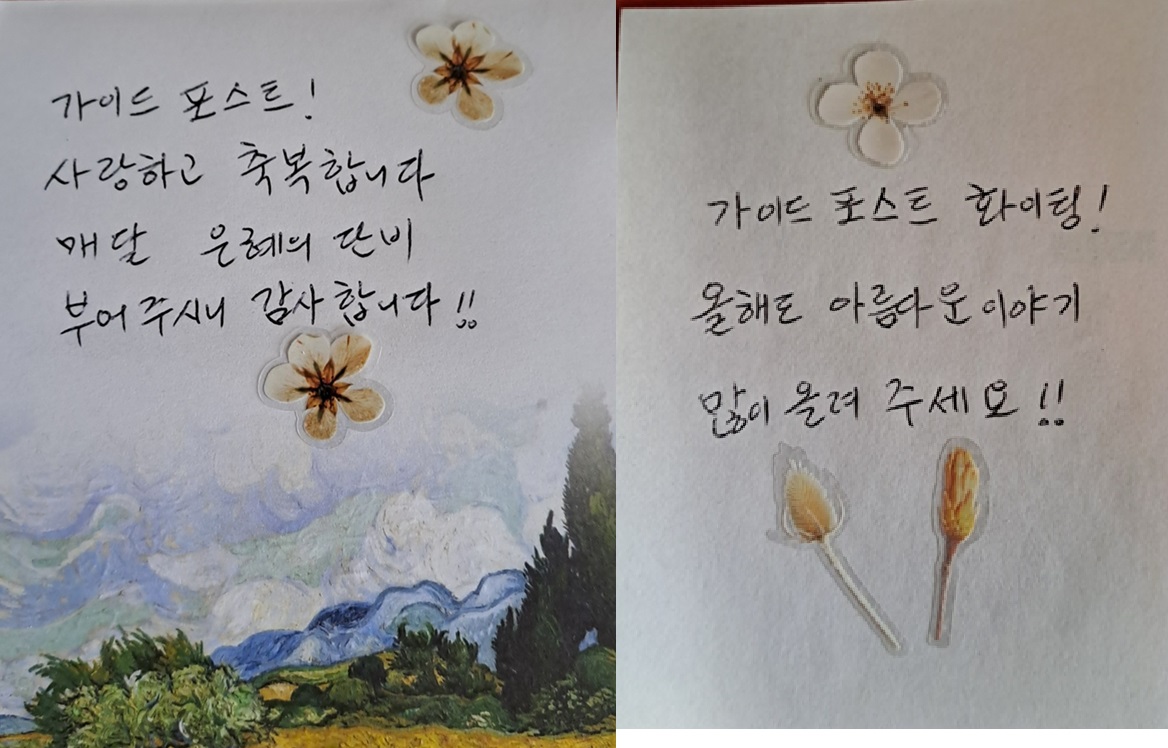 가이드 포스트!
사랑하고 축복합니다
매달 은혜의 단비
부어 주시니 감사합니다!!
가이드 포스트 화이팅!
올해도 아름다운 이야기
많이 올려 주세요!!